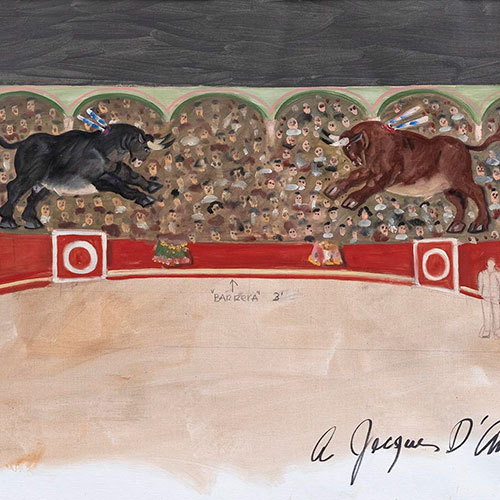 "BARRERA" 3'
A Jacques D'